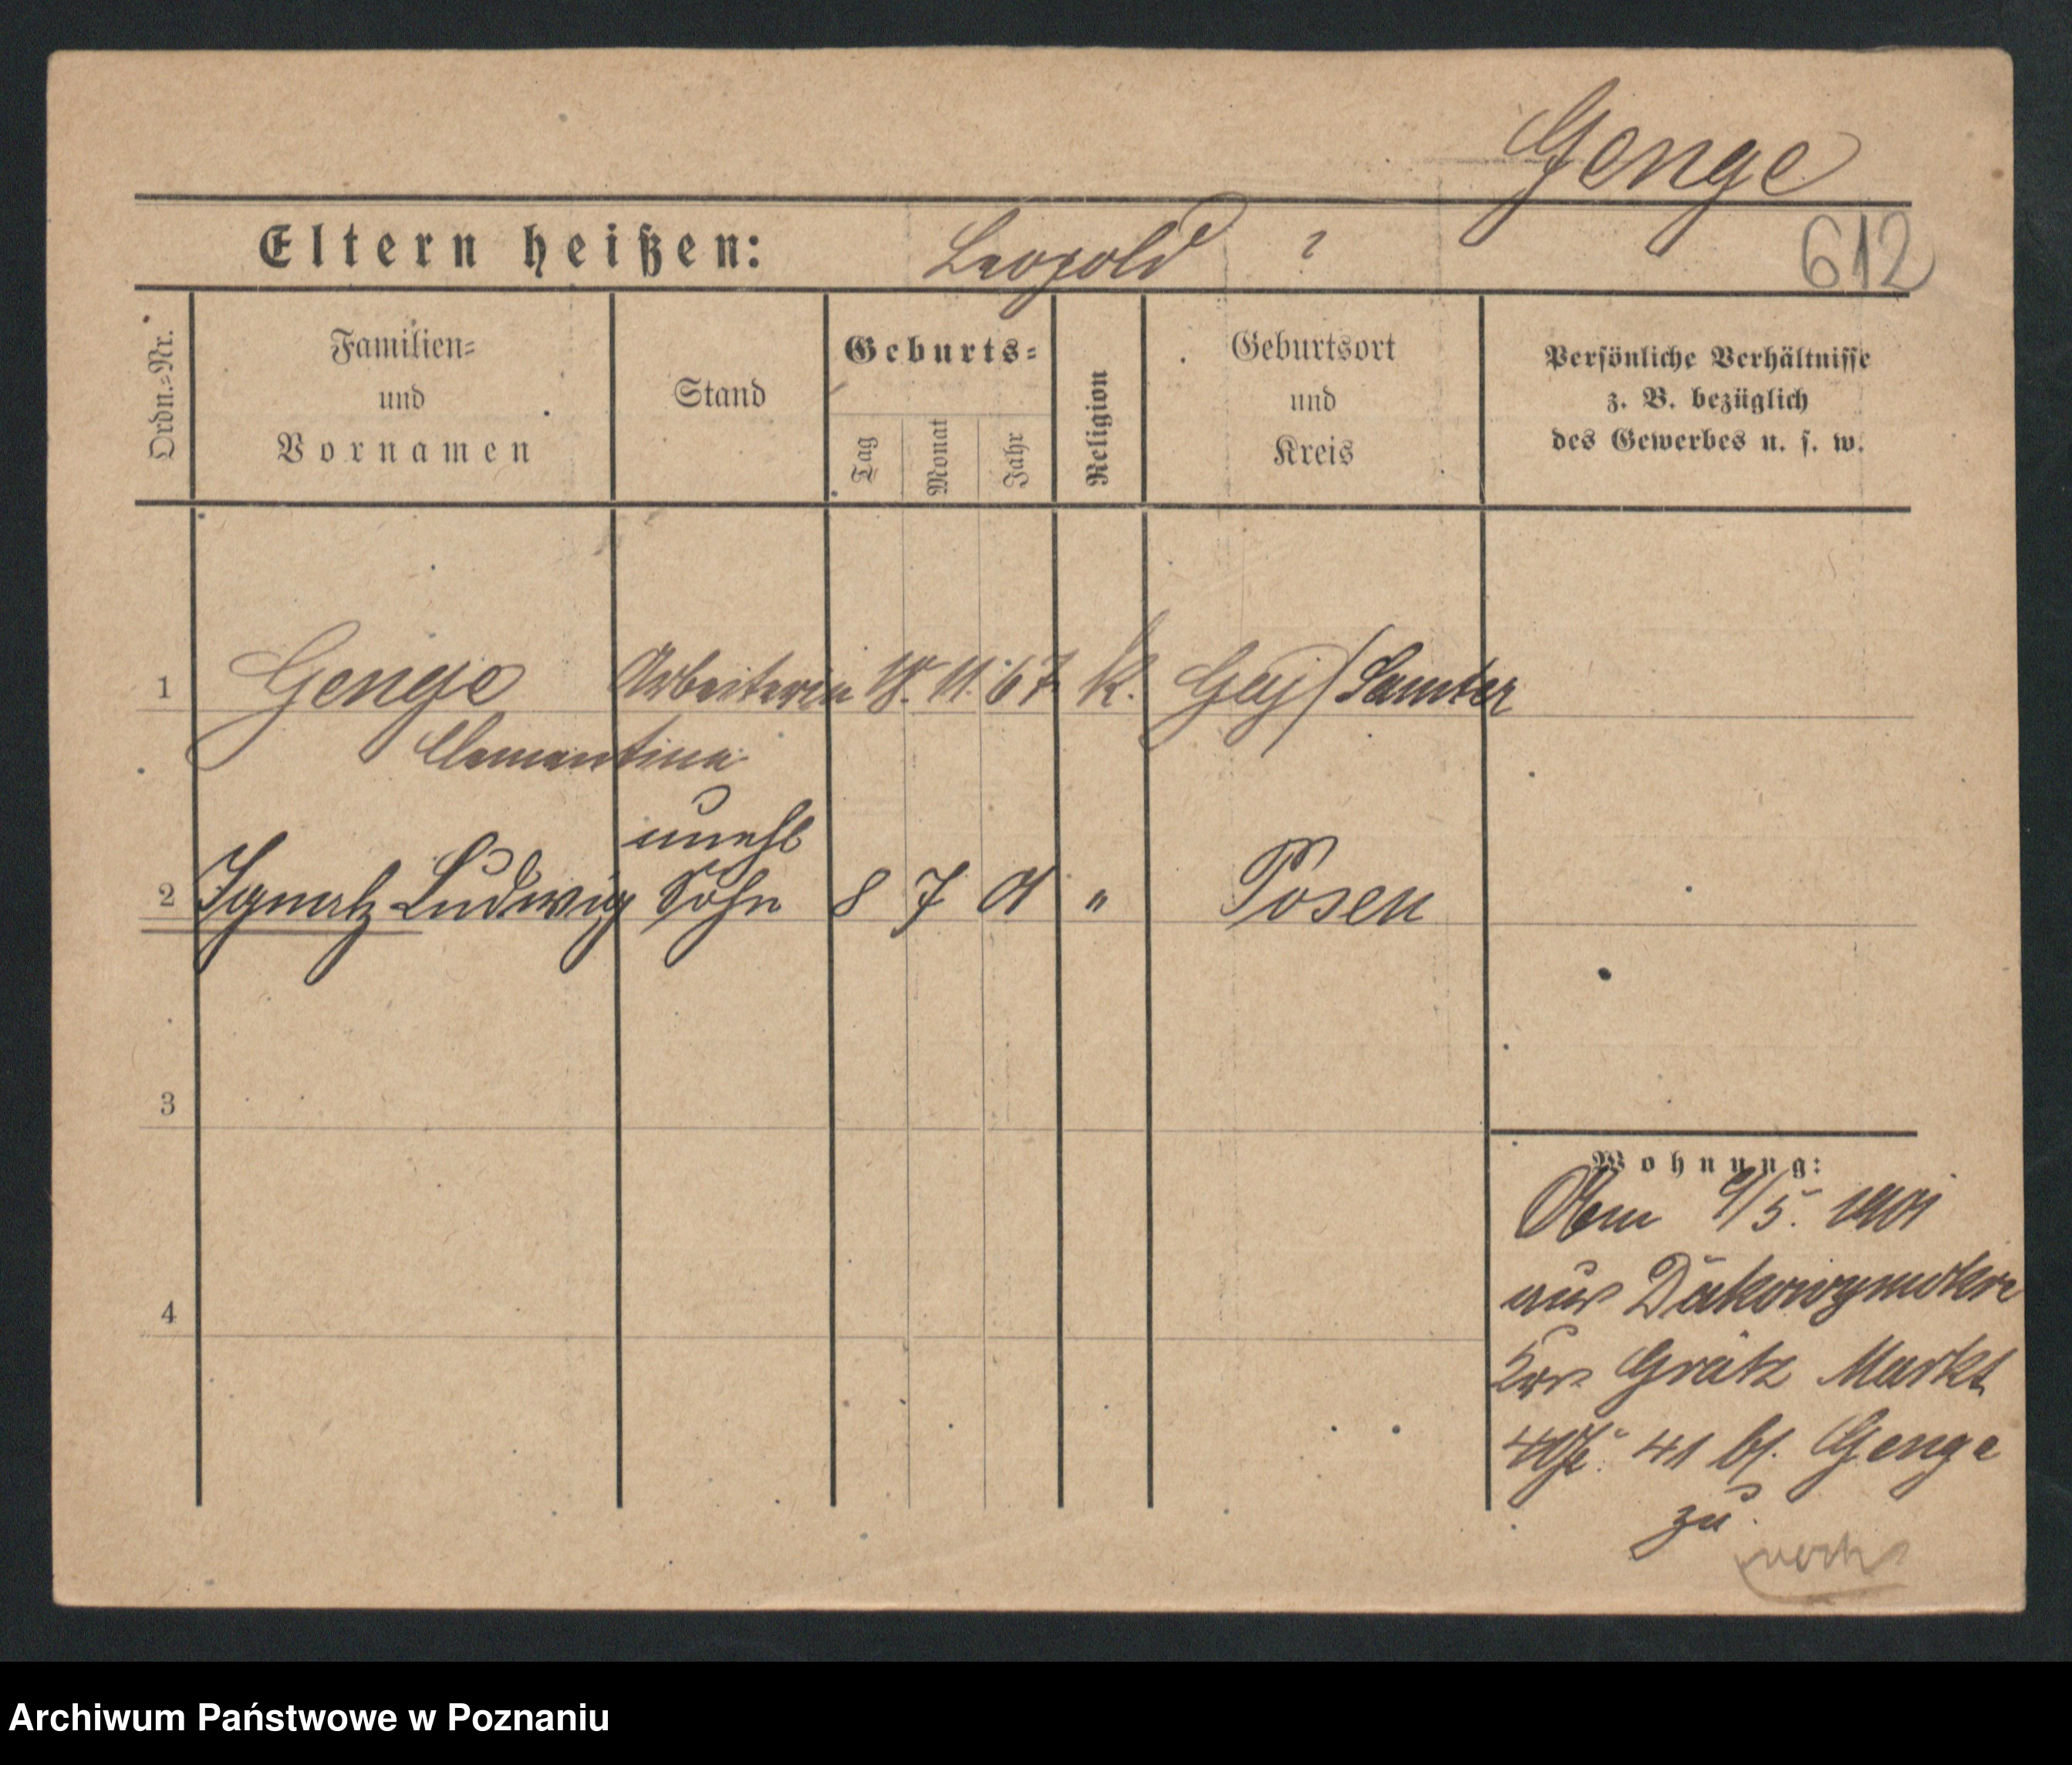 Genge
Eltern heißen: Leopold ?
612
Ordn.-Nr.
Familien-
und
Vornamen
Stand
Geburts-
Tag
Monat
Jahr
Religion
Geburtsort
und
Kreis
Persönliche Verhältnisse
z. B. bezüglich
des Gewerbes u. s. w.
1 Genge Arbeiterin 18. 11. 67 K. Gay / Samter
Clementina
unehl
2 Ignatz Ludwig Sohn 8 7 01 " Posen
3
4
Wohnung:
/5. 1901
aus Dakowymokre
Krs Grätz Markt
41 bf. Genge
zu
noch
Archiwum Państwowe w Poznaniu